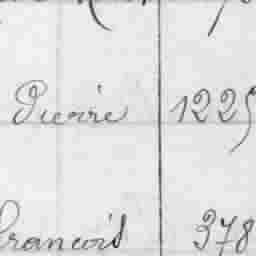 Pierre 1225
François 378